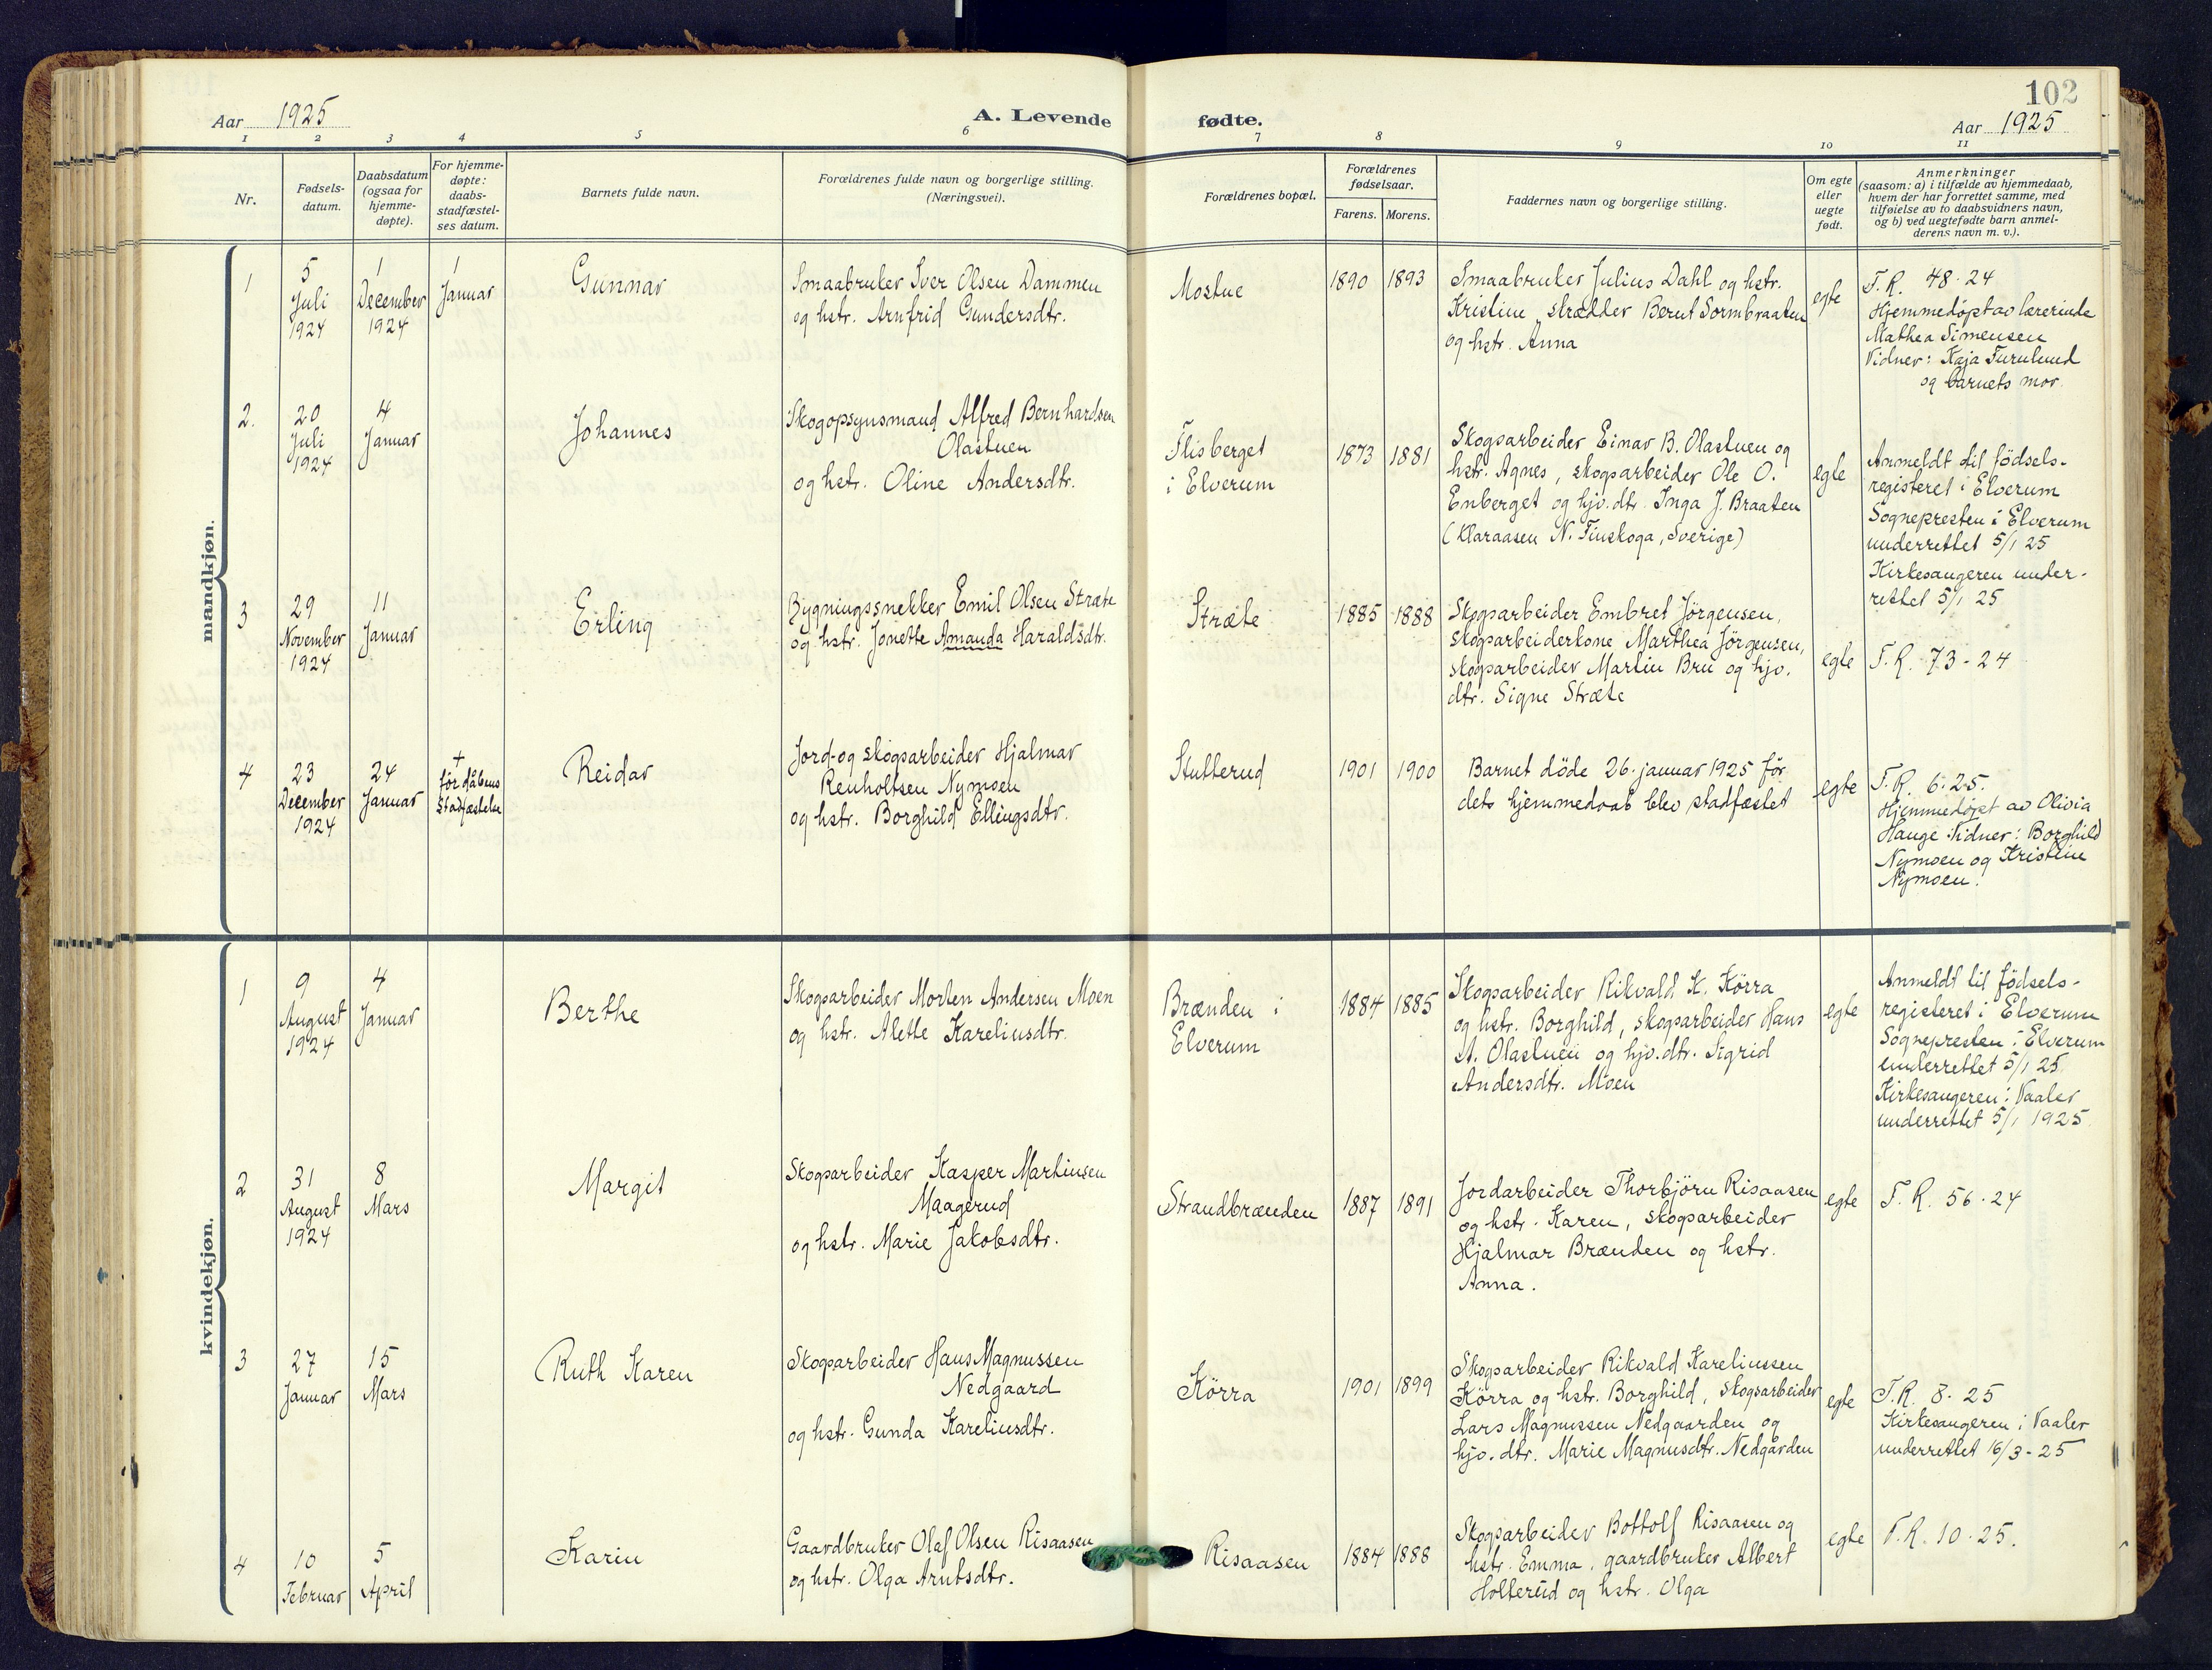 102
Aar 1925
A. Levende fødte.
Aar 1925
1 2 3 4 5 6 7 8 9 10 11
Nr.
Fødsels-
datum.
Daabsdatum
(ogsaa for
hjemme-
døpte).
For hjemme-
døpte:
daabs-
stadfæstel-
ses datum.
Barnets fulde navn.
Forældrenes fulde navn og borgerlige stilling.
(Næringsvei).
Forældrenes bopæl.
Forældrenes
fødselsaar.
Farens. Morens.
Faddernes navn og borgerlige stilling.
Om egte
eller
uegte
født.
Anmerkninger
(saasom: a) i tilfælde av hjemmedaab,
hvem der har forrettet samme, med
tilføielse av to daabsvidners navn,
og b) ved uegtefødte barn anmel-
derens navn m. v.).
mandkjøn.
1
5
Juli
1924
1
December
1924
1
Januar
Gunnar
Smaabruker Iver Olsen Dammen
og hstr. Arnfrid Gundersdtr.
Mostue
1890
1893
Smaabruker Julius Dahl og hstr.
Kristine, skrædder Bernt Sormbraaten
og hstr. Anna
egte
F.R. 48-24
Hjemmedøpt av lærerinde
Mathea Simensen
Vidner: Kaja Furulund
og barnets mor.
2.
20
Juli
1924
4
Januar
Johannes
Skogopsynsmand Alfred Bernhardsen
Olastuen
og hstr. Oline Andersdtr.
Flisberget
i Elverum
1873
1881
Skogsarbeider Einar B. Olastuen og
hstr. Agnes, skogsarbeider Ole O.
Enberget og hjv.dtr. Inga J. Braaten
(Klaraasen N. Finskoga, Sverige)
egte
Anmeldt til fødsels-
registeret i Elverum
Sognepresten i Elverum
underrettet 5/1 25
Kirkesangeren under-
rettet 5/1 25
3
29
November
1924
11
Januar
Erling
Bygningssnekker Emil Olsen Stræte
og hstr. Jonette Amanda Haraldsdtr.
Stræte
1885
1888
Skogsarbeider Embret Jörgensen,
skogsarbeiderkone Marthea Jörgensen,
skogsarbeider Martin Bru og hjv.
dtr. Signe Stræte
egte
F.R. 73-24
4
23
December
1924
24
Januar
+
för dåbens
Stadfæstelse
Reidar
Jord-og skogsarbeider Hjalmar
Renholtsen Nymoen
og hstr. Borghild Ellingsdtr.
Stutterud
1901
1900
Barnet döde 26. januar 1925 för
dets hjemmedaab blev stadfæstet
egte
F.R. 6-25.
Hjemmedøpt av Olivia
Hauge. Vidner: Borghild
Nymoen og Kristine
Nymoen.
kvindekjøn.
1
9
August
1924
4
Januar
Berthe
Skogsarbeider Morten Andersen Moen
og hstr. Alette Kareliusdtr.
Brænden i
Elverum
1884
1885
Skogsarbeider Rikvald K. Körra
og hstr. Borghild, skogsarbeider Hans
A. Olastuen og hjv.dtr. Sigrid
Andersdtr. Moen
egte
Anmeldt til födsels-
registeret i Elverum
Sognepresten i Elverum
underrettet 5/1 25.
Kirkesangeren i Vaaler
underrettet 5/1 1925
2
31
August
1924
8
Mars
Margit
Skogsarbeider Kasper Martinsen
Maagerud
og hstr. Marie Jakobsdtr.
Strandbrænden
1887
1891
Jordarbeider Thorbjörn Risaasen
og hstr. Karen, skogsarbeider
Hjalmar Brænden og hstr.
Anna.
egte
F.R. 56-24
3
27
Januar
15
Mars
Ruth Karen
Skogsarbeider Hans Magnussen
Nedgaard
og hstr. Gunda Kareliusdtr.
Körra
1901
1899
Skogsarbeider Rikvald Kareliussen
Körra og hstr. Borghild, skogsarbeider
Lars Magnussen Nedgaarden og
hjv.dtr. Marie Magnusdtr. Nedgården
egte
F.R. 8-25
Kirkesangeren i Vaaler
underrettet 16/3-25
4
10
Februar
5
April
Karin
Gaardbruker Olaf Olsen Risaasen
og hstr. Olga Arntsdtr.
Risaasen
1884
1888
Skogsarbeider Bottolf Risaasen og
hstr. Emma, gaardbruker Albert
Holterud og hstr. Olga
egte
F.R. 10-25.